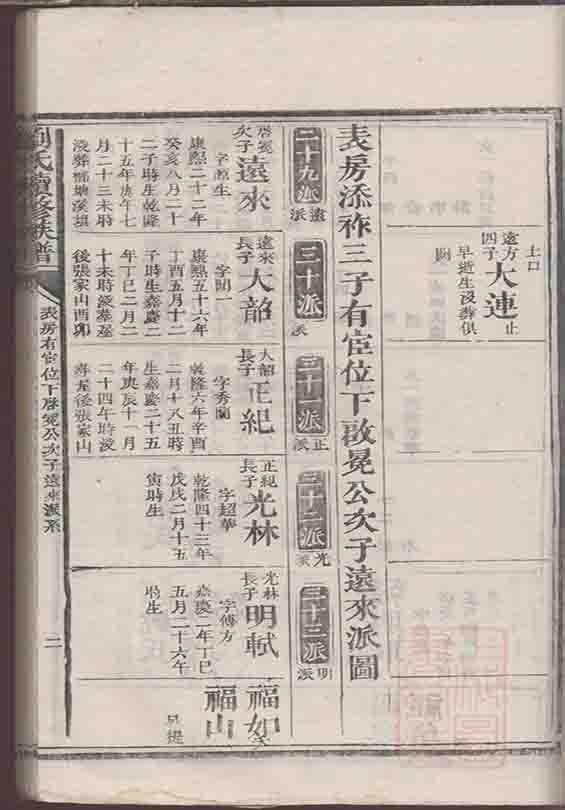 士口
遠方
四子
大連
止
早逝生沒葬俱
闕
表房添祚三子有宦位下啟冕公次子遠來派圖
二十九派
遠派
三十派
大派
三十一派
正派
三十二派
光派
三十三派
明派
啓冕
次子
遠來
字源生
康熙二十二年
癸亥八月二十
二子時生乾隆
十五年庚午七
月二十三未時
沒葬
遠來
長子
大韶
字開一
康熙五十六年
丁酉五月十二
子時生嘉慶二
年丁巳二月二
十未時歿葬屋
後張家山酉卯
大韶
長子
正紀
字秀蘭
乾隆六年辛酉
二月十八丑時
生嘉慶二十五
年庚辰十一月
二十四午時沒
葬屋後張家山
正紀
長子
光林
字超華
乾隆四十三年
戊戌二月十五
寅時生
光林
長子
明軾
字傅方
嘉慶二年丁巳
五月二十六午
時生
福如
福山
另提
劉氏續修族譜
表房有宦位下啓冕公次子遠來派系
二